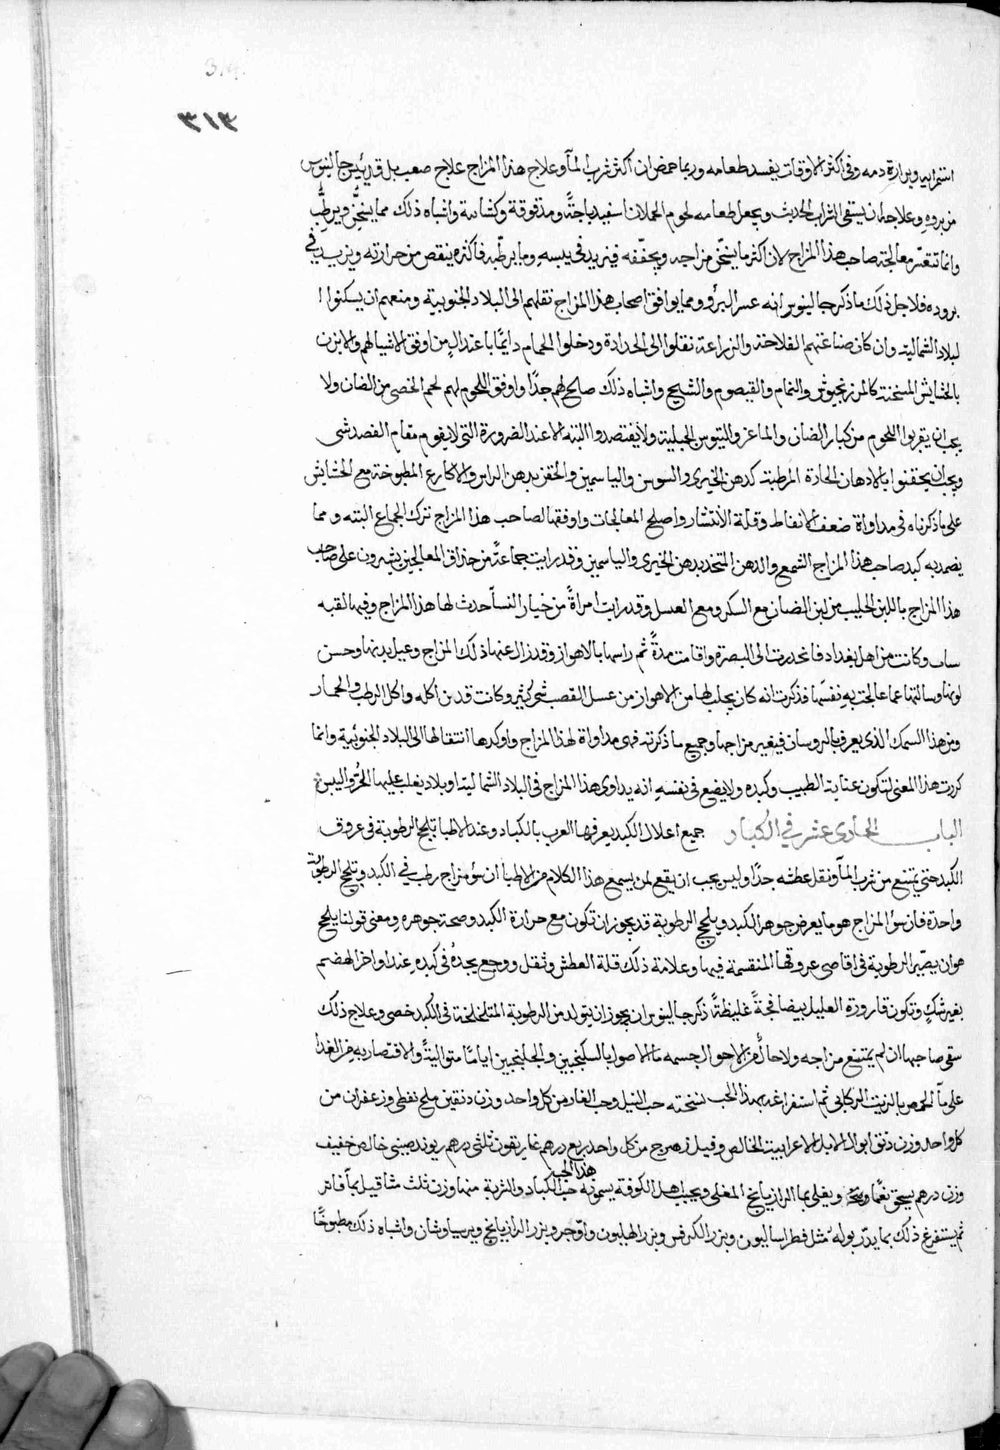 ٣١٣
استمرايها وبرارة دمه وفى اكثر الاوقات يفسد طعامه وربما حمض ان اكثر شرب المآ وعلاج هذا المزاج علاج صعب بل قد يئس جالينوس
من بروه وعلاجه ان يسقى الشراب الحديث ويجعل طعامه لحوم الحملان اسفيدباجةً ومدقوقة وكشامة واشباه ذلك مما يسخّن ويرطّب
وانما تتعسّر معالجة صاحب هذا المزاج لان اكثر ما يسخّن مزاجه ويجفّفه فيزيد فى يبسه وما يرطّبه فاكثره ينقص من حرارته ويزيد فى
بروده فلاجل ذلك ما ذكر جالينوس انه عسر البرؤ ومما يوافق اصحاب هذا المزاج نقلهم الى البلاد الجنوبية ومنعهم ان يسكنوا ا
لبلاد الشمالية وان كان صناعتهم الفلاحة والزراعة نقلوا الى الحدادة ودخلوا الحمام دايمًا باعتدال من اوفق الاشيا لهم والابزن
بالحشايش المسخنة كالمرزنجوش والنمام والقيصوم والشيح واشباه ذلك صالح لهم جدًا واوفق اللحوم لهم لحم الخصى من الضان ولا
يجب ان يقربوا اللحوم من كبار الضان والماعز والتيوس الجبلية ولا يفتصدوا البته الا عند الضرورة التى لا يقوم مقام الفصد شى
ويجب ان يحقنوا بالادهان الحارة المرطبة كدهن الخيرى والسوسن والياسمين والحقن بدهن الراس والاكارع المطبوخة مع الحشايش
على ما ذكرناه فى مداواة ضعف الانفاظ وقلة الانتشار واصلح المعالجات واوفقها لصاحب هذا المزاج ترك الجماع البته ومما
يضمد به كبد صاحب هذا المزاج الشمع والدهن المتخذ بدهن الخيرى والياسمين وقد رايت جماعةً من حذاق المعالجين يشيرون على صاحب
هذا المزاج باللبن الحليب من لبن الضان مع السكر ومع العسل وقد رايت امراةً من خيار النسآ حدث لها هذا المزاج وفيها بقيه
وكانت من اهل بغداد فانحدرت الى البصرة واقامت مدةً ثم رايتها بالاهواز وقد زال عنها ذلك المزاج وعبل بدنها وحسن
لونها وسالتها عما عالجت به نفسها فذكرت انه كان يجلب لها من الاهواز من عسل القصب شى كثير وكانت قد من اكله واكل الرطب والجمار
ومن هذا السمك الذى يعرف بالروسان فيغير مزاجها وجميع ما ذكرته فهى مداواة لهذا المزاج واوكدها انتقالها الى البلاد الجنوبية وانما
كررت هذا المعنى لتكون عناية الطبيب وكبده ولا يضع فى نفسه انه يداوى هذا المزاج فى البلاد الشمالية او بلاد يغلب عليها الحرّ واليبس
الباب الحادى عشر فى الكباد جميع اعلال الكبد يعرفها العرب بالكباد وعند الاطبا تلحج الرطوبة فى عروق
الكبد حتى يمتنع من شرب المآ ونقل عطشه جدًا وليس يجب ان يقع لمن يسمع هذا الكلام من الاطبا ان سؤ مزاج رطب فى الكبد وتلحج الرطوبة
واحدة فان سؤ المزاج هو ما يعرض جوهر الكبد ويلحج الرطوبة قد يجوز ان تكون مع حرارة الكبد وصحة جوهره ومعنى قولنا يلحج
هو ان يصير الرطوبة فى اقاصى عروقها المنقسمة فيها وعلامة ذلك قلة العطش وثقل ووجع يجدهُ فى كبده عند اواخر الهضم
بغير شك وتكون قارورة العليل بيضا فجةً غليظةً ذكر جالينوس ان يجوز ان يتولد من الرطوبة المتلحلحة فى الكبد حصى وعلاج ذلك
سقى صاحبها ان لم يمتنع مزاجه ولا حال من الاحوال جسمه مآ الاصول بالسكنجبين والجلنجبين ايامًا متواليةً والاقتصار به من الغذا
على مآ الحمص بالزيت الركابى ثم استفراغه بهذا الحب نسخته حب النيل وحب الغار من كل واحد وزن دنقين ملح نفطى وزعفران من
كل واحد وزن دنق ابوال الابل الاعرابية الخالص وفيل زهرج من كل واحد ربع درهم غاريقون ثلثى درهم ريوند صينى خالص خفيف
وزن درهم يسحق نعمًا ويعجن ويغلى بما الرازيانج المغلى ويحبب هذا الحب اهل الكوفة يسمونه حب الكباد والشربة منها وزن ثلث مثاقيل بمآ فاتر
ثم يستفرغ ذلك بما يدرّ بوله مثل فطراساليون وبزر الكرفس وبزر الهليون واوّج وبزر الرازيانج وبرسياوشان واشباه ذلك مطبوخًا